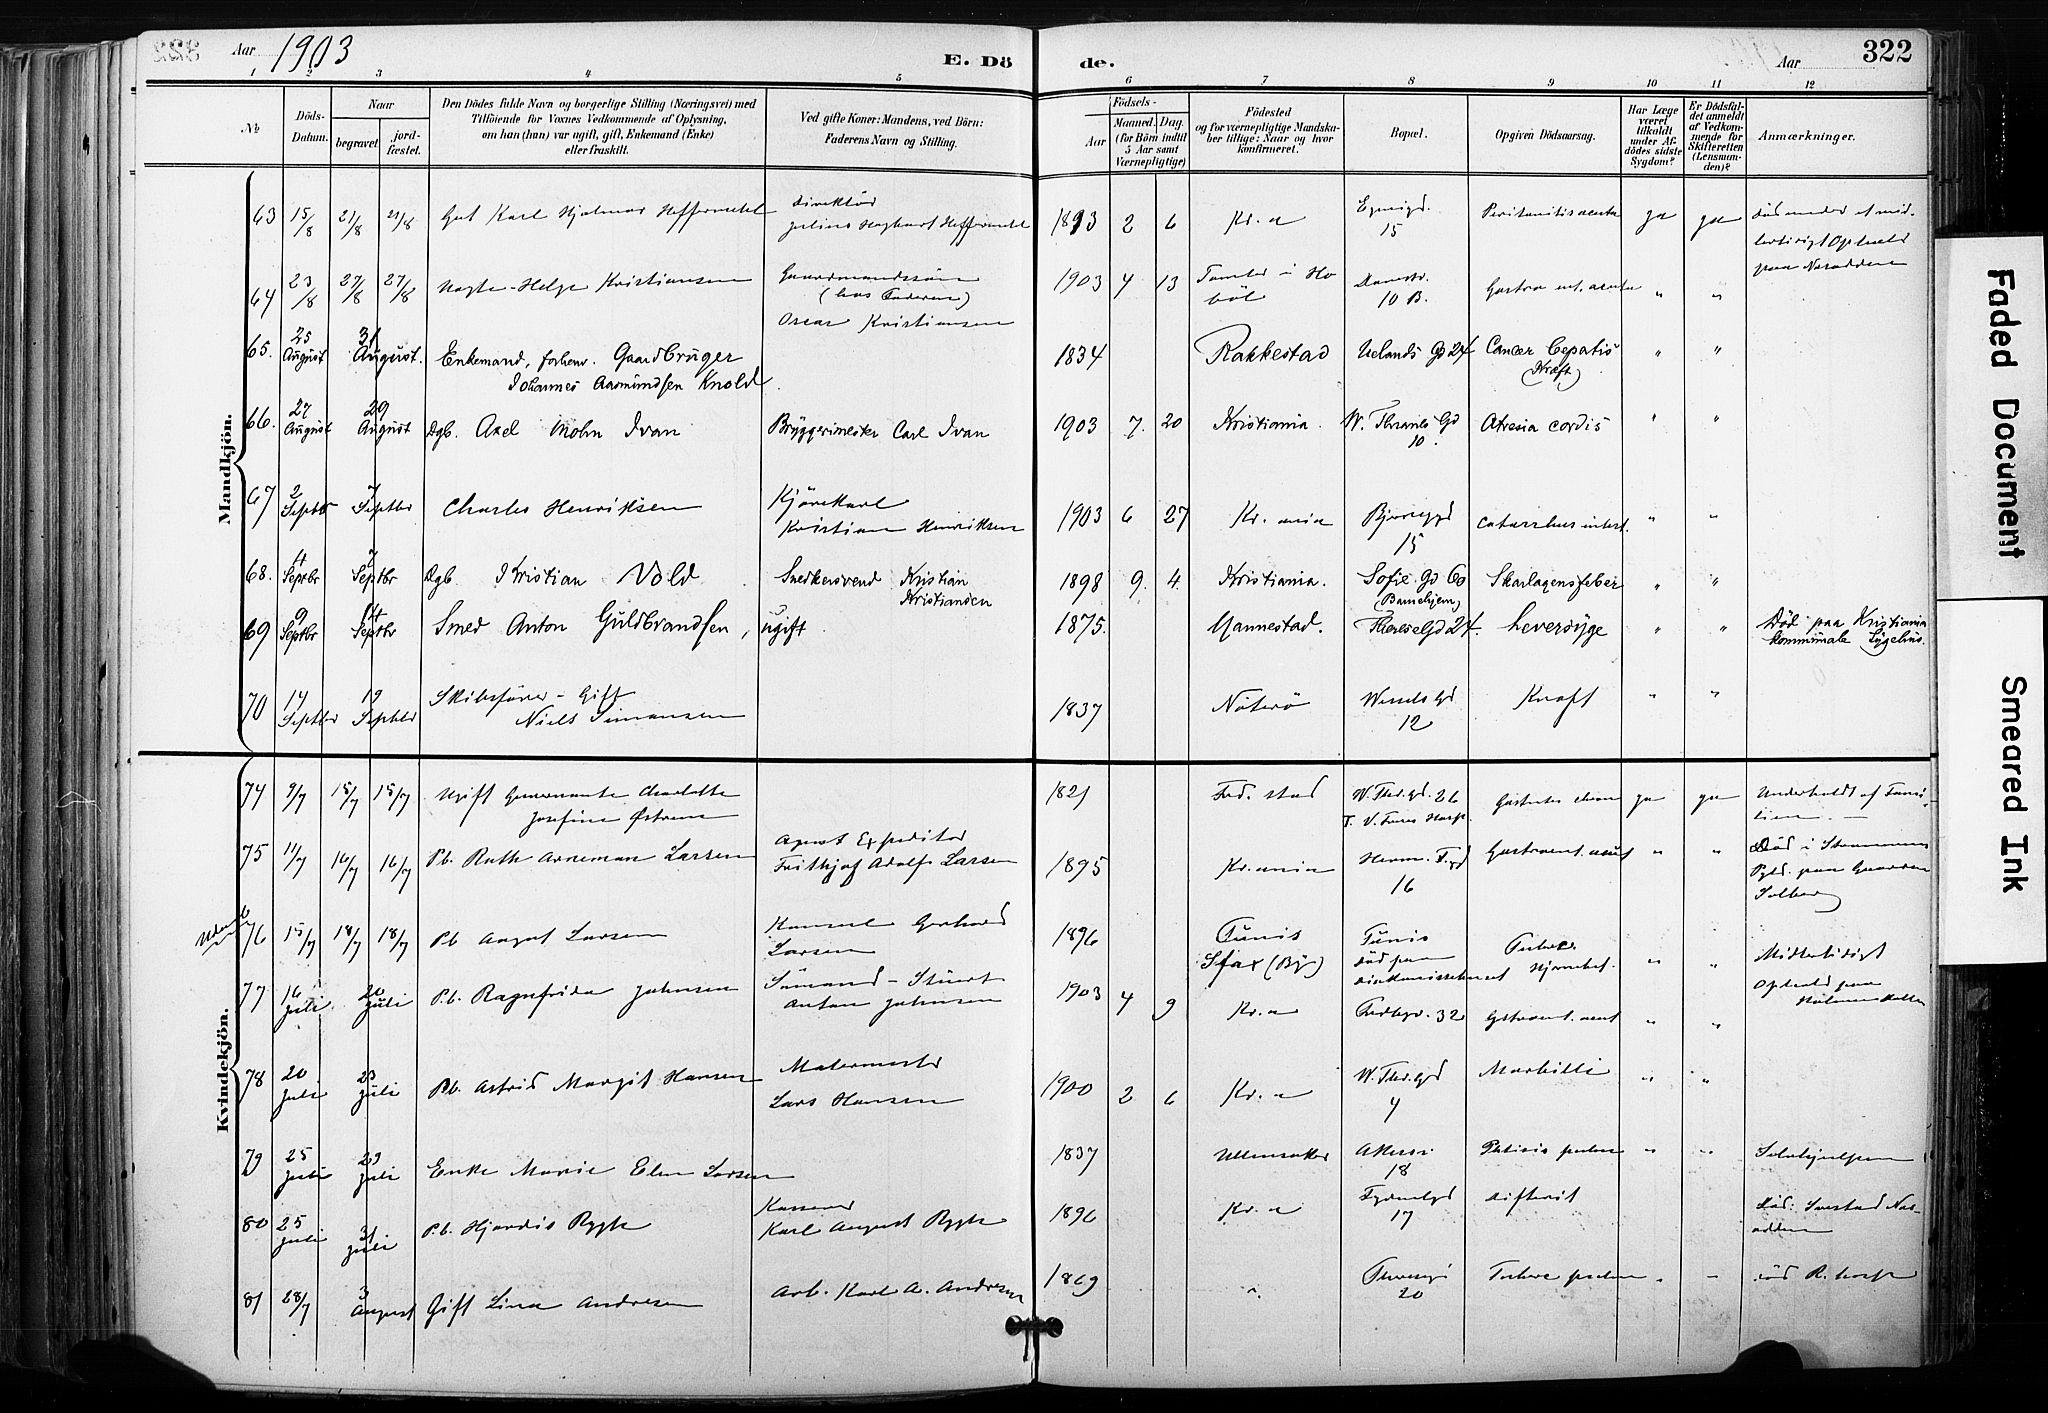 Aar 1903
E. Dö
de.
Aar
322
1 2 3 4 5 6 7 8 9 10 11 12
No
Döds-Datum.
Naar
begravet
jord-fæstet.
Den Dödes fulde Navn og borgerlige Stilling (Næringsvei) med
Tilföiende for Voxnes Vedkommende af Oplysning,
om han (hun) var ugift, gift, Enkemand (Enke)
eller fraskilt.
Ved gifte Koner: Mandens, ved Börn:
Faderens Navn og Stilling.
Födsels-
Aar
Maaned. Dag.
(for Börn indtil
5 Aar samt
Værnepligtige)
Födested
og for værnepligtige Mandska-
ber tillige: Naar og hvor
konfirmeret.
Bopæl.
Opgiven Dödsaarsag.
Har Læge
været
tilkaldt
under Af-
dödes sidste
Sygdom?
Er Dödsfal-
det anmeldt
af Vedkom-
mende for
Skifteretten
(Lensman-
den)?
Anmærkninger.
Mandkjön.
63 15/8 21/8 21/8 Gut Karl Hjalmar Heffermehl Direktör 1893 2 6 Kr.a 15 Peritonitis acuta ja ja
64 23/8 27/8 27/8 Helge Kristiansen Gaardmandssön 1903 4 13 Tomter i Ho
böl 10 B. Gastro ent. acuta " "
Oscar Kristiansen
65. 25 August 31 August. Enkemand, forhenv. Gaardbruger
Johannes Aasmundsen Knold. 1834 Rakkestad Uelands Gd 24 Cancer hepatis
(Kræft) " "
66. 27 August 29 August Dgb. Axel Mohn Ivan Bryggerimester Carl Ivan 1903 7. 20 Kristiania. W. Thranes Gd
10. Atresia cordis " "
67 2 Septbr 7 Septbr Charles Henriksen Kjörekarl
Kristian Henriksen 1903 6 27 Kr.ania 15 catarrhus intest. " "
68. 4 Septbr 7 Septbr Dgb. Kristian Vold Snedkersvend Kristian
Kristiansen 1898 9. 4. Kristiania. Sofie Gd 60
(Barnehjem) Skarlagensfeber " "
69 9 Septbr 14 Septbr Smed Anton Guldbrandsen, ugift 1875. Vannestad. Therese Gd 24. Leversyge " " Död paa Kristiania
kommunale Sygehus.
70 14 Septbr 19 Septbr Skibsförer - Gift
Niels Simonsen 1837 Nöterö Wessels Gd
12 Kræft " "
Kvindekjön.
74 9/7 15/7 15/7 Ugift Guvernante Charlotte
Josefine 1821 Fred.stad W. Thr. Gd. 26 ja ja Underholdt af Fami-
lien.
75 11/7 16/7 16/7 Pb. Ruth Arneman Larsen Agent Expeditör
Frithjof Adolf Larsen 1895 Kr.ania 16 Gastroent. acut " " Död i Strömmens
Pgld. paa Gaarden
Solberg
76 15/7 18/7 18/7 Pb. August Larsen Konsul Gerhard
Larsen 1896 Tunis
Sfax (By) Tunis
död paa Hjernebet. " " Midlertidigt
Ophold paa
77 16 Juli 20 Juli Pb. Ragnfrida Johnsen Sömand - Stuert
Anton Johnsen 1903 4 9 Kr.a 32 Gstroent. acut " "
78 20 Juli 23 Juli Pb. Astrid Margit Hansen
Lars Hansen 1900 2 6 Kr.a W. Thr. Gd
4 Morbilli " "
79 25 Juli 29 Juli Enke Marie Elen Larsen 1837 Ullensaker Akersv
18 Phtisis pulm " "
80 25 Juli 31 Juli Pb. Hjördis Rygh
Karl August Rygh 1896 Kr.a 17 difterit
81 28/7 3 August Gift Lina Andresen Arb. Karl A. Andresen 1869 " Theresegd
20 Tuberc pulm " " död R. hosp
Faded Document
Smeared Ink